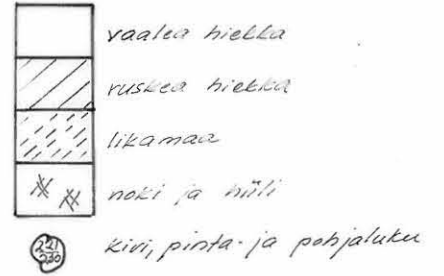 vaalea hiekka
ruskea hiekka
likamaa
noki ja hiili
221
230
kivi, pinta- ja pohjaluku